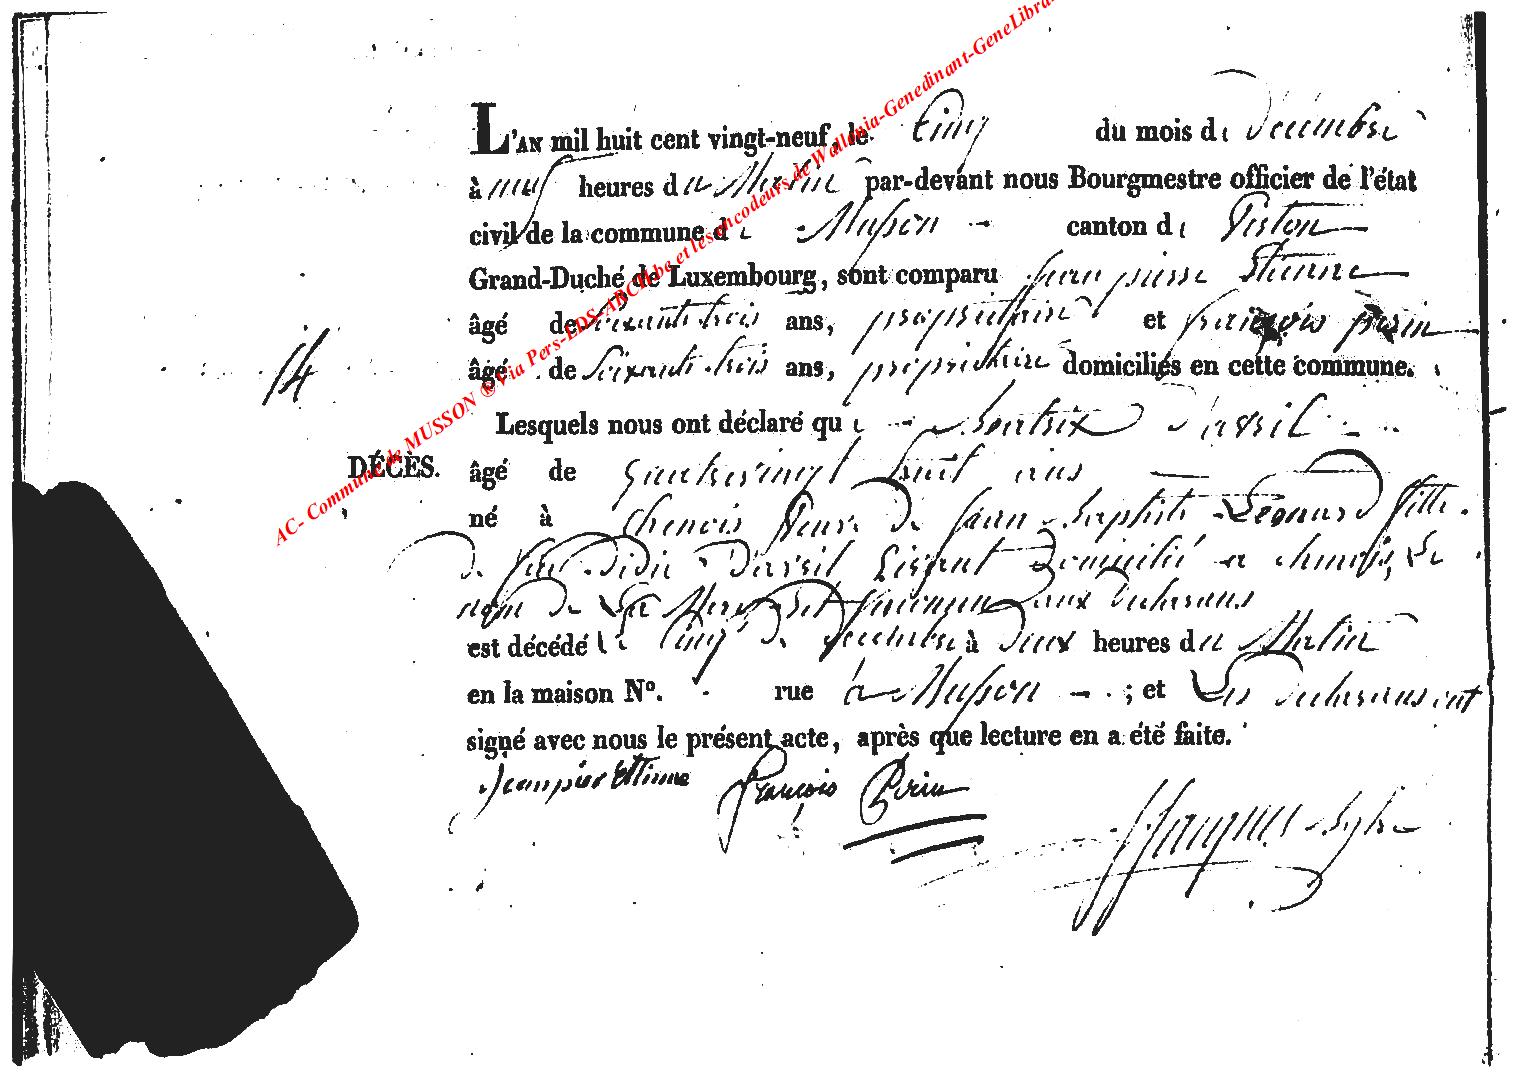 L'AN mil huit cent vingt-neuf, le Cinq du mois de décembre
à neuf heures du Matin par-devant nous Bourgmestre officier de l'état
civil de la commune de Musson canton de Virton
Grand-Duché de Luxembourg, sont comparu jean pierre Etienne
âgé de soixante trois ans, propriétaire et françois perin
14
âgé de Soixante trois ans, propriétaire domiciliés en cette commune.
Lesquels nous ont déclaré que beatrix d'arsil
DÉCÈS. âgé de quatrevingt huit ans
né à chenois veuve de jean baptiste Léonard fille
de feu didie d'arsil vivant domicilié a chenois, Le
nom de La Mere est inconnu aux déclarans
est décédé le Cinq de decembre à deux heures du Matin
en la maison N°. rue à Musson ; et Les déclarans ont
signé avec nous le présent acte, après que lecture en a été faite.
Jean pier Etienne françois Perin
AC- Commune de MUSSON ® Via Pers-EDS-ARCH.be et les encodeurs de Wallonia-Genedinant-GeneLibra